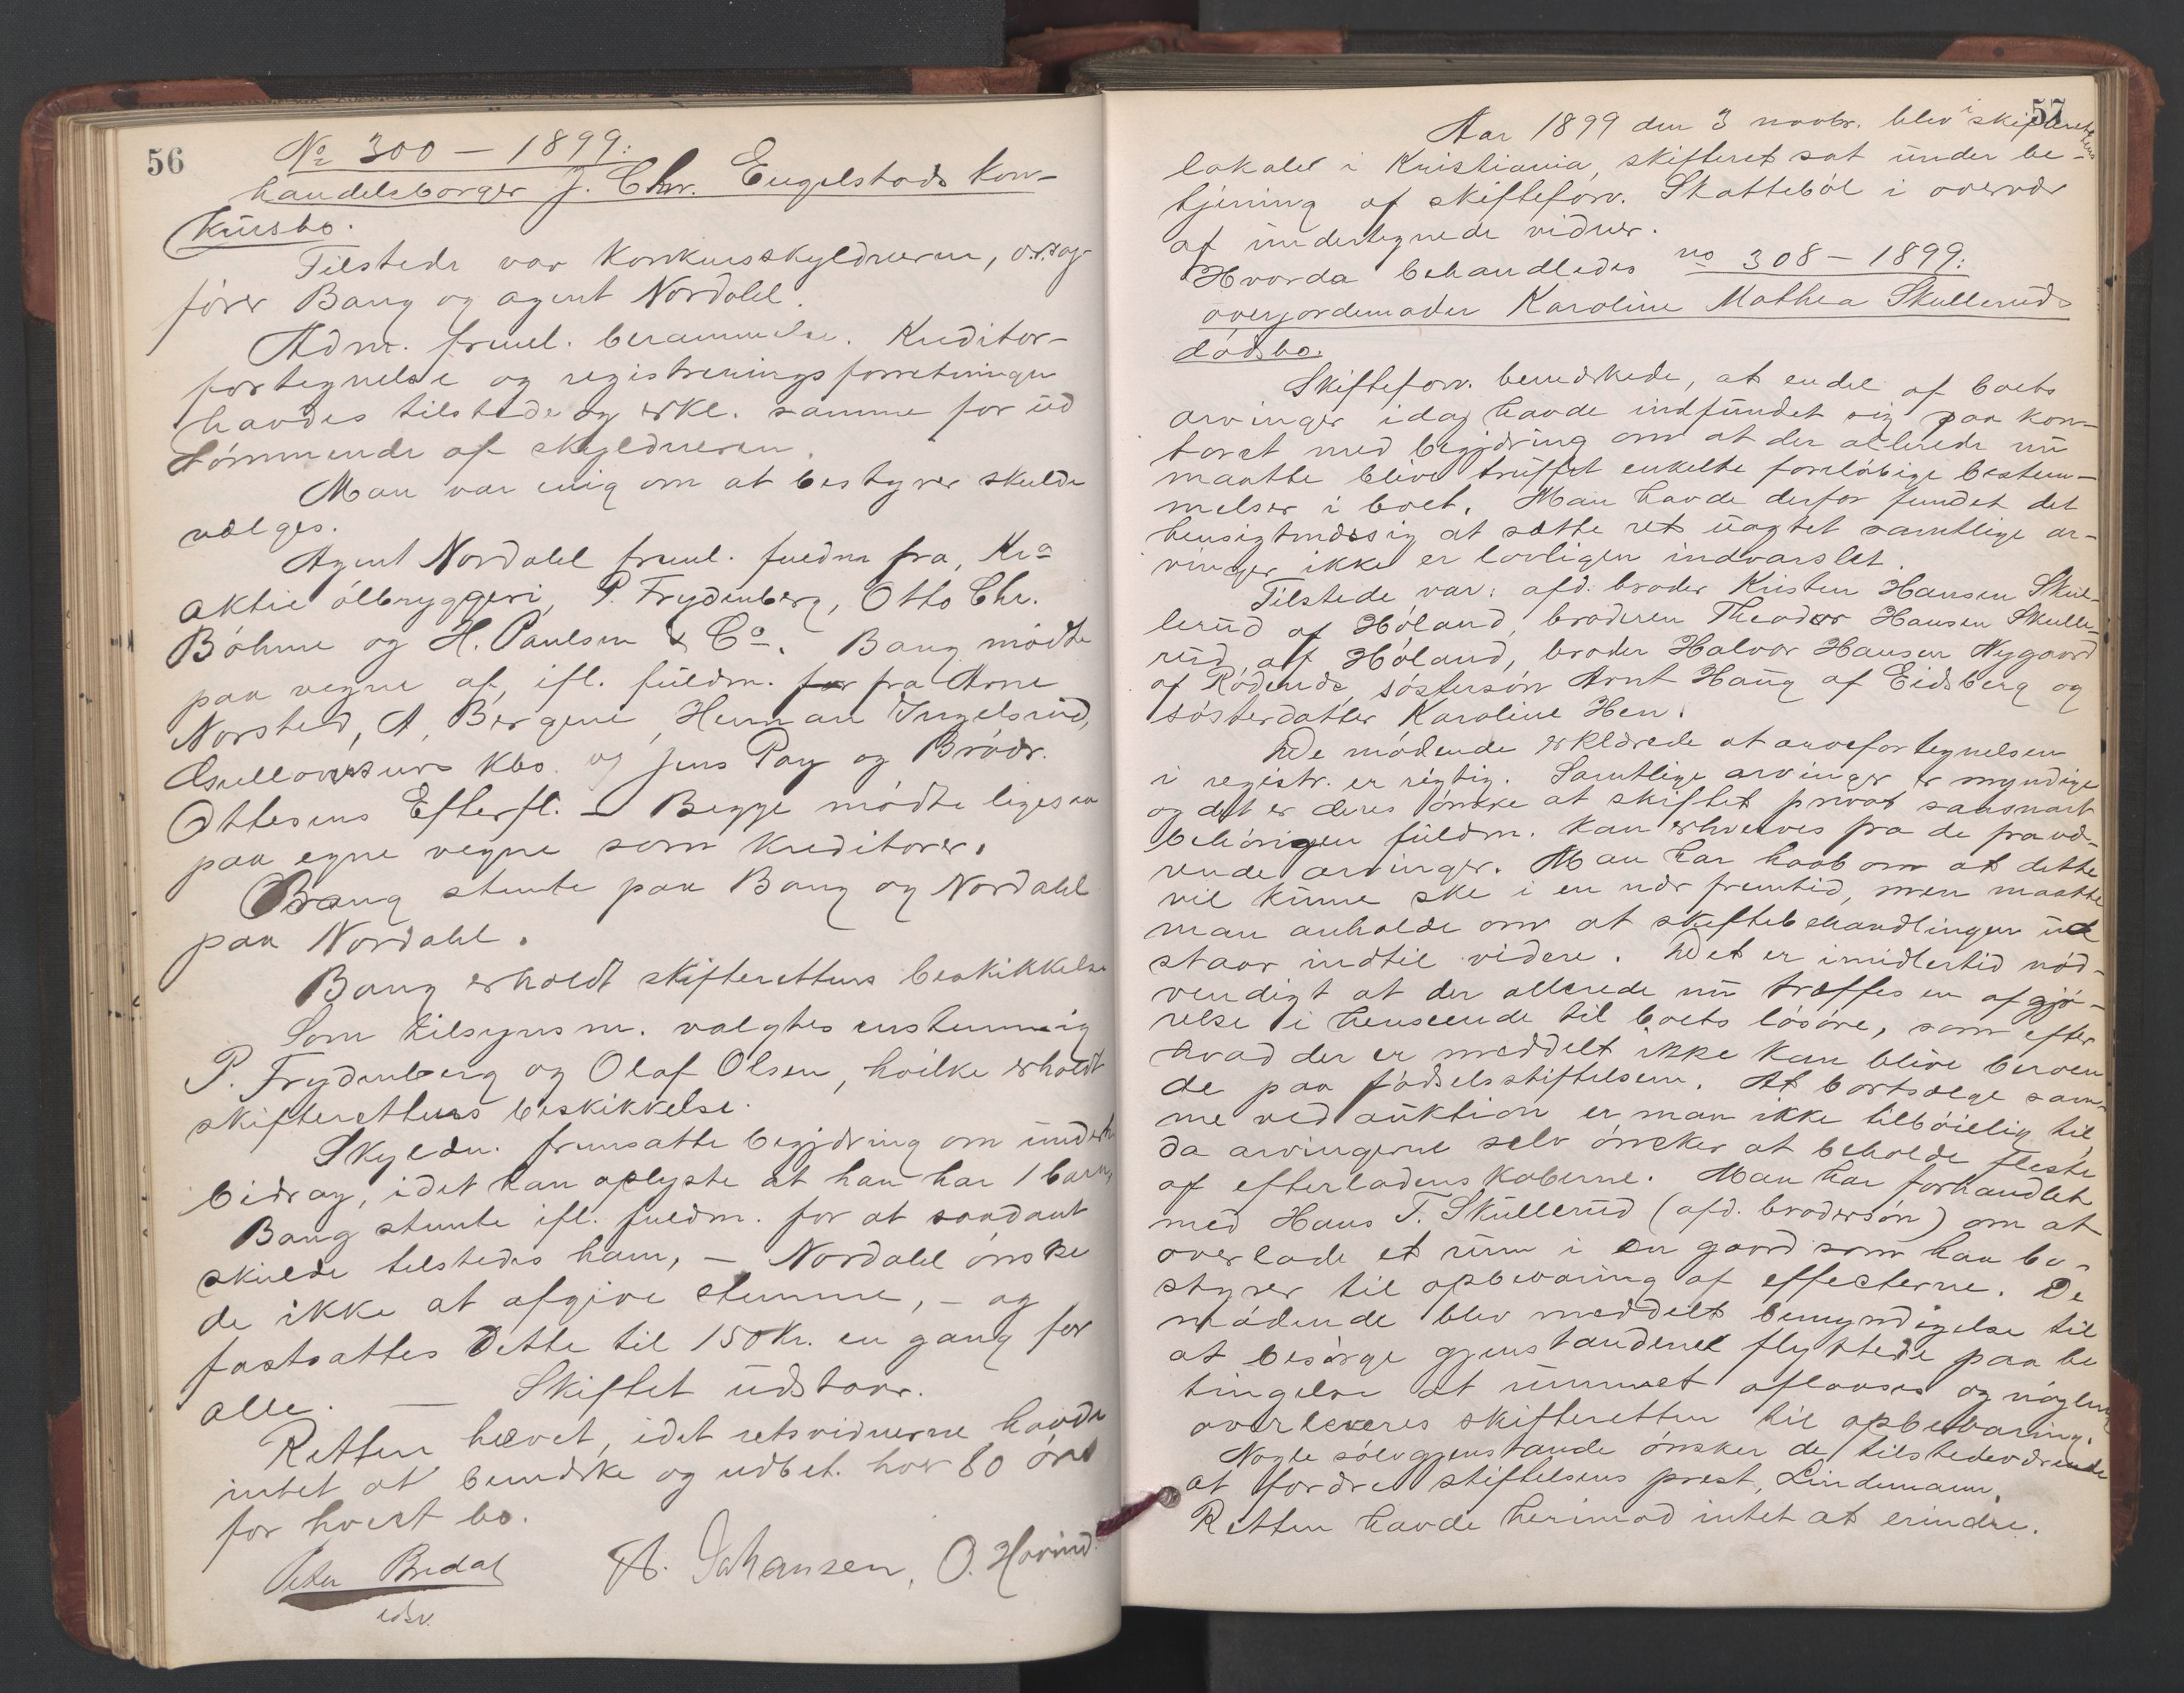 56
No 300 – 1899:
handelsborger J. Chr. Engelstads kon-
kursbo.
Tilstede var konkursskyldneren, o.r.sag-
fører Bang og agent Nordahl.
Adm. freml. berammelse. Kreditor-
fortegnelse og registreringsforretningen
havdes tilstede og erkl. samme for ud
tømmende af skyldneren.
Man var enig om at bestyrer skulde
vælges.
Agent Nordahl freml. fuldm fra, Kra
aktie ølbryggeri, P. Frydenberg, Otto Chr.
Böhme og H. Paulsen & Co. Bang mødte
paa vegne af, ifl. fuldm. for fra Arne
Norsted, A. Bergene, Herman Ingelsrud,
kbo. og Jens Pay og Brødr.
Ottesens Efterfl. – Begge mødte ligesaa
paa egne vegne som kreditorer.
Bang stemte paa Bang og Nordahl
paa Nordahl.
Bang erholdt skifterettens beskikkelse
Som tilsynsm. valgtes enstemmig
P. Frydenberg og Olaf Olsen, hvilke erholdt
skifterettens beskikkelse.
Skyldn. fremsatte begjæring om underh
bidrag, idet han oplyste at han har 1 barn,
Bang stemte ifl. fuldm. for at saadant
skulde tilstedes ham, – Nordahl ønske
de ikke at afgive stemme, – og
fastsattes dette til 150 Kr. en gang for
alle. – Skiftet udstaar.
Retten hævet, idet retsvidnerne havde
intet at bemærke og udbet. hver 80 øre
for hvert bo.
Peter Bredal
edsv.
A. Johansen, O. Hovind.
57
Aar 1899 den 3 novbr. blev i skifterettens
lokale i Kristiania, skifteret sat under be-
tjening af skifteforv. Skattebøl i overvær
af undertegnede vidner.
Hvorda behandledes no 308 – 1899:
overjordemoder Karoline Mathea Skulleruds
dødsbo.
Skifteforv. bemærkede, at endel af boets
arvinger idag havde indfundet sig paa kon-
toret med begjæring om at der allerede nu
maatte blive truffet enkelte foreløbige bestem-
melser i boet. Man havde derfor fundet det
hensigtmæssig at sætte ret uagtet samtlige ar-
vinger ikke er lovligen indvarslet.
Tilstede var: afd. broder Kristen Hansen Skul-
lerud af Høland, broderen Theodor Hansen Skulle-
rud, af Høland, broder Halvor Hansen Nygaard
af Rødenæs, søstersøn Arnt Haug af Eidsberg og
søsterdatter Karoline Hen.
De mødende erklærede at arvefortegnelsen
i registr. er rigtig. Samtlige arvinger er myndige
og det er deres ønske at skiftet privat saasnart
behørigen fuldm. kan erhverves fra de fravæ-
rende arvinger. Man har haab om at dette
vil kunne ske i en nær fremtid, men maatte
man anholde om at skiftebehandlingen ud
staar indtil videre. Det er imidlertid nød-
vendigt at der allerede nu træffes en afgjø-
relse i henseende til boets løsøre, som efter
hvad der er meddelt ikke kan blive beroen
de paa fødselsstiftelsen. At bortsælge sam-
me ved auktion er man ikke tilbøielig til,
da arvingerne selv ønsker at beholde fleste
af efterladenskaberne. Man har forhandlet
med Hans T. Skullerud (afd. brodersøn) om at
overlade et rum i en gaard som han be-
styrer til opbevaring af effecterne. De
mødende blev meddelt bemyndigelse til
at besørge gjenstandene flyttede paa be
tingelse at rummet aflaases og nøglen
overleveres skifteretten til opbevaring.
Nogle sølvgjenstande ønsker de tilstedeværende
at fordre stiftelsens prest, Lindemann.
Retten havde herimod intet at erindre.